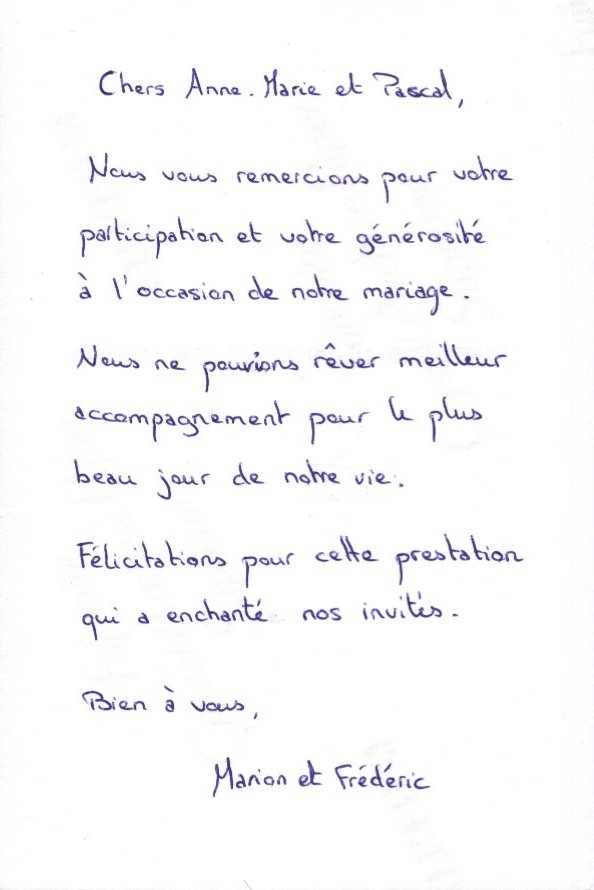 Chers Anne-Marie et Pascal,
Nous vous remercions pour votre
participation et votre générosité
à l'occasion de notre mariage.
Nous ne pouvions rêver meilleur
accompagnement pour le plus
beau jour de notre vie.
Félicitations pour cette prestation
qui a enchanté nos invités.
Bien à vous,
Marion et Frédéric